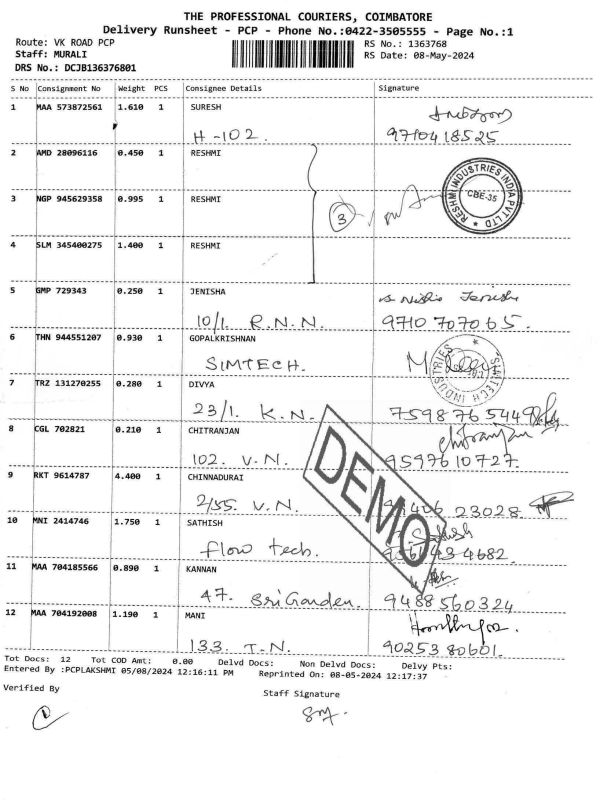 THE PROFESSIONAL COURIERS, COIMBATORE
Delivery Runsheet - PCP - Phone No.:0422-3505555 - Page No.:1
Route: VK ROAD PCP RS No.: 1363768
Staff: MURALI RS Date: 08-May-2024
DRS No.: DCJB136376801
S No Consignment No Weight PCS Consignee Details Signature
1 MAA 573872561 1.610 1 SURESH
H-102. 9710418525
2 AMD 28096116 0.450 1 RESHMI
RESHMI INDUSTRIES INDIA PVT LTD CBE-35
3 NGP 945629358 0.995 1 RESHMI
3
4 SLM 345400275 1.400 1 RESHMI
5 GMP 729343 0.250 1 JENISHA
10/1. R.N.N. 9710707065.
6 THN 944551207 0.930 1 GOPALKRISHNAN
SIMTECH.
SIMTECH INDUSTRIES
7 TRZ 131270255 0.280 1 DIVYA
23/1. K.N. 7598765449
8 CGL 702821 0.210 1 CHITRANJAN
Chitranjan
102. V.N. 9597610727.
9 RKT 9614787 4.400 1 CHINNADURAI
2/55. V.N. 23028.
10 MNI 2414746 1.750 1 SATHISH
flow tech. 4682.
11 MAA 704185566 0.890 1 KANNAN
47. Sri Garden. 9488560324
12 MAA 704192008 1.190 1 MANI
133. T.N. 9025380601.
DEMO
Tot Docs: 12 Tot COD Amt: 0.00 Delvd Docs: Non Delvd Docs: Delvy Pts:
Entered By :PCPLAKSHMI 05/08/2024 12:16:11 PM Reprinted On: 08-05-2024 12:17:37
Verified By Staff Signature